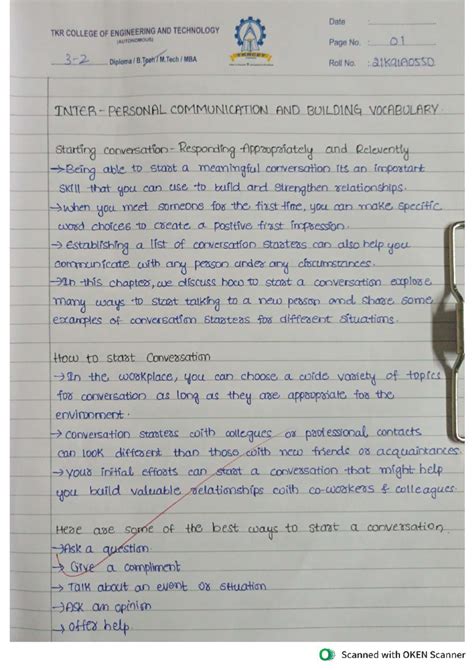 TKR COLLEGE OF ENGINEERING AND TECHNOLOGY
(AUTONOMOUS)
3-2 Diploma / B.Tech / M.Tech / MBA
Date :
Page No. : 01
Roll No. : 21K91A0550
INTER-PERSONAL COMMUNICATION AND BUILDING VOCABULARY.
Starting conversation - Responding Appropriately and Relevently
→Being able to start a meaningful conversation its an important
skill that you can use to build and strengthen relationships.
→when you meet someone for the first time, you can make specific
word choices to create a positive first impression.
→ Establishing a list of conversation starters can also help you
communicate with any person under any circumstances.
→In this chapter, we discuss how to start a conversation explore
many ways to start talking to a new person and share some
examples of conversation starters for different situations.
How to start Conversation
→In the workplace, you can choose a wide variety of topics
for conversation as long as they are appropriate for the
environment.
→ conversation starters with collegues or professional contacts
can look different than those with new friends or acquaintances.
→ your initial efforts can start a conversation that might help
you build valuable relationships with co-workers & colleagues.
Here are some of the best ways to start a conversation
→Ask a question
→ Give a compliment
→ Talk about an event or situation
→Ask an opinion
→ offer help
Scanned with OKEN Scanner